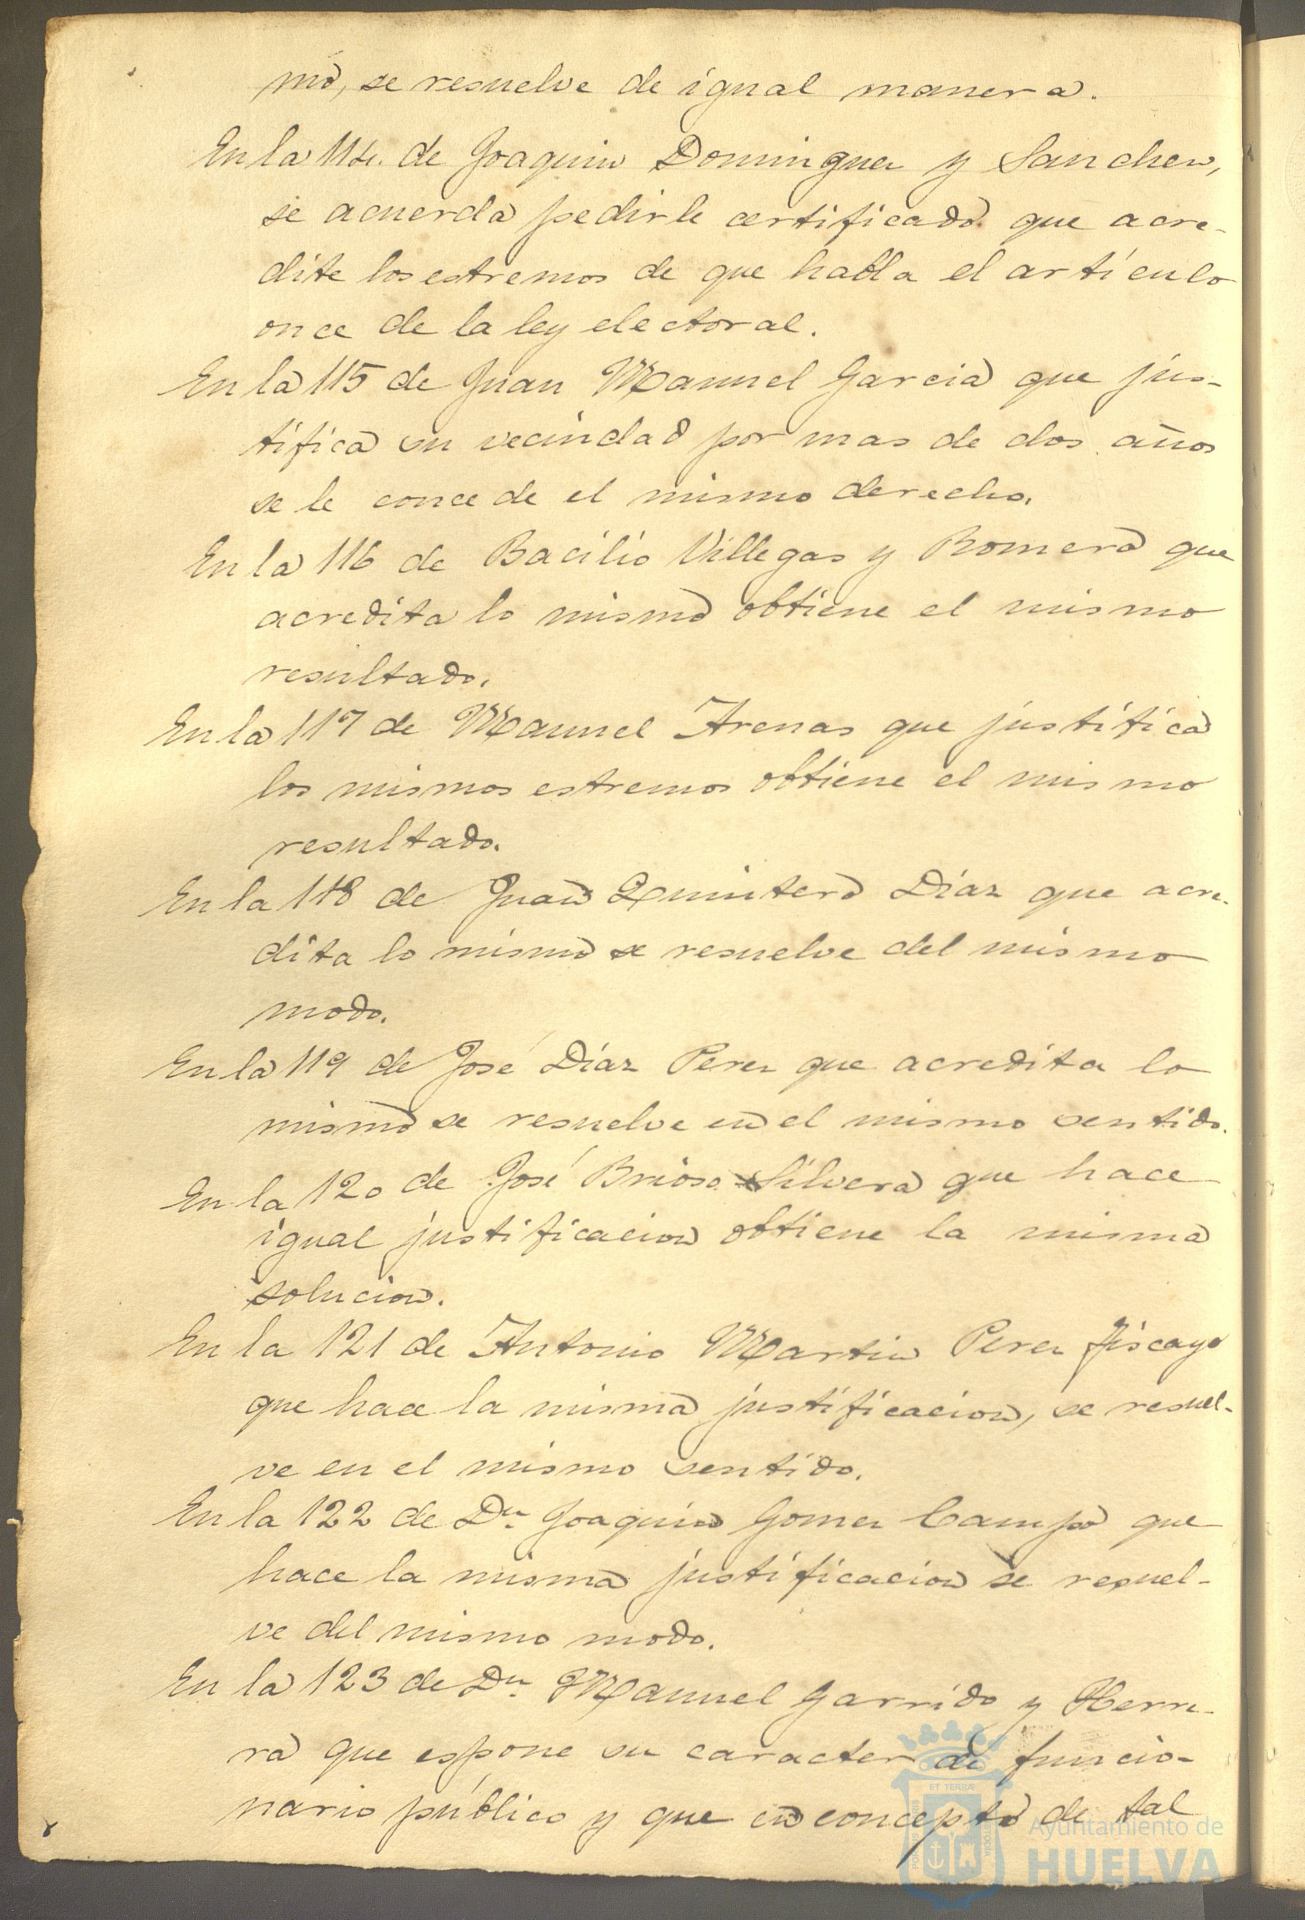 mo, se resuelve de igual manera.
En la 114. de Joaquin Dominguez y Sanchez,
se acuerda pedirle certificado que acre-
dite los estremos de que habla el artículo
once de la ley electoral.
En la 115 de Juan Manuel Garcia que jus-
tifica su vecindad por mas de dos años
se le concede el mismo derecho.
En la 116 de Bacilio Villegas y Romera que
acredita lo mismo obtiene el mismo
resultado.
En la 117 de Manuel Arenas que justifica
los mismos estremos obtiene el mismo
resultado.
En la 118 de Juan Quintero Díaz que acre-
dita lo mismo se resuelve del mismo
modo.
En la 119 de José Díaz Perez que acredita lo
mismo se resuelve en el mismo sentido.
En la 120 de José Brioso Silvera que hace
igual justificacion obtiene la misma
solucion.
En la 121 de Antonio Martin Perez
que hace la misma justificacion, se resuel-
ve en el mismo sentido.
En la 122 de Dn. Joaquin Gomez Campo que
hace la misma justificacion se resuel-
ve del mismo modo.
En la 123 de Dn. Manuel Garrido y Herre-
ra que espone su caracter de funcio-
nario público y que en concepto de tal
Ayuntamiento de
HUELVA